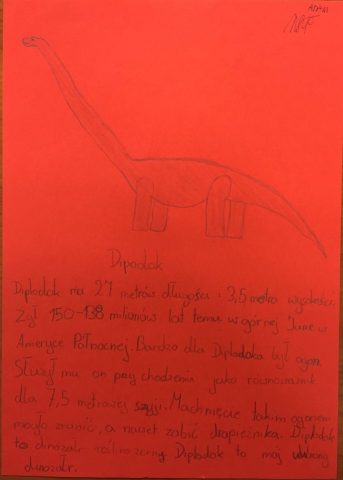 ADAM
Dipodok
Diplodok ma 27 metrów długości i 3,5 metra wysokości.
Żył 150-138 milionów lat temu w górnej Jurze w
Ameryce Północnej. Bardzo dla Diplodoka był ogon.
Służył mu on przy chodzeniu jako równoważnik
dla 7,5 metrowej szyji. Machnięcie takim ogonem
mogło zranić, a nawet zabić drapieżnika. Diplodok
to dinozałr roślinożerny. Diplodok to mój
dinozałr.